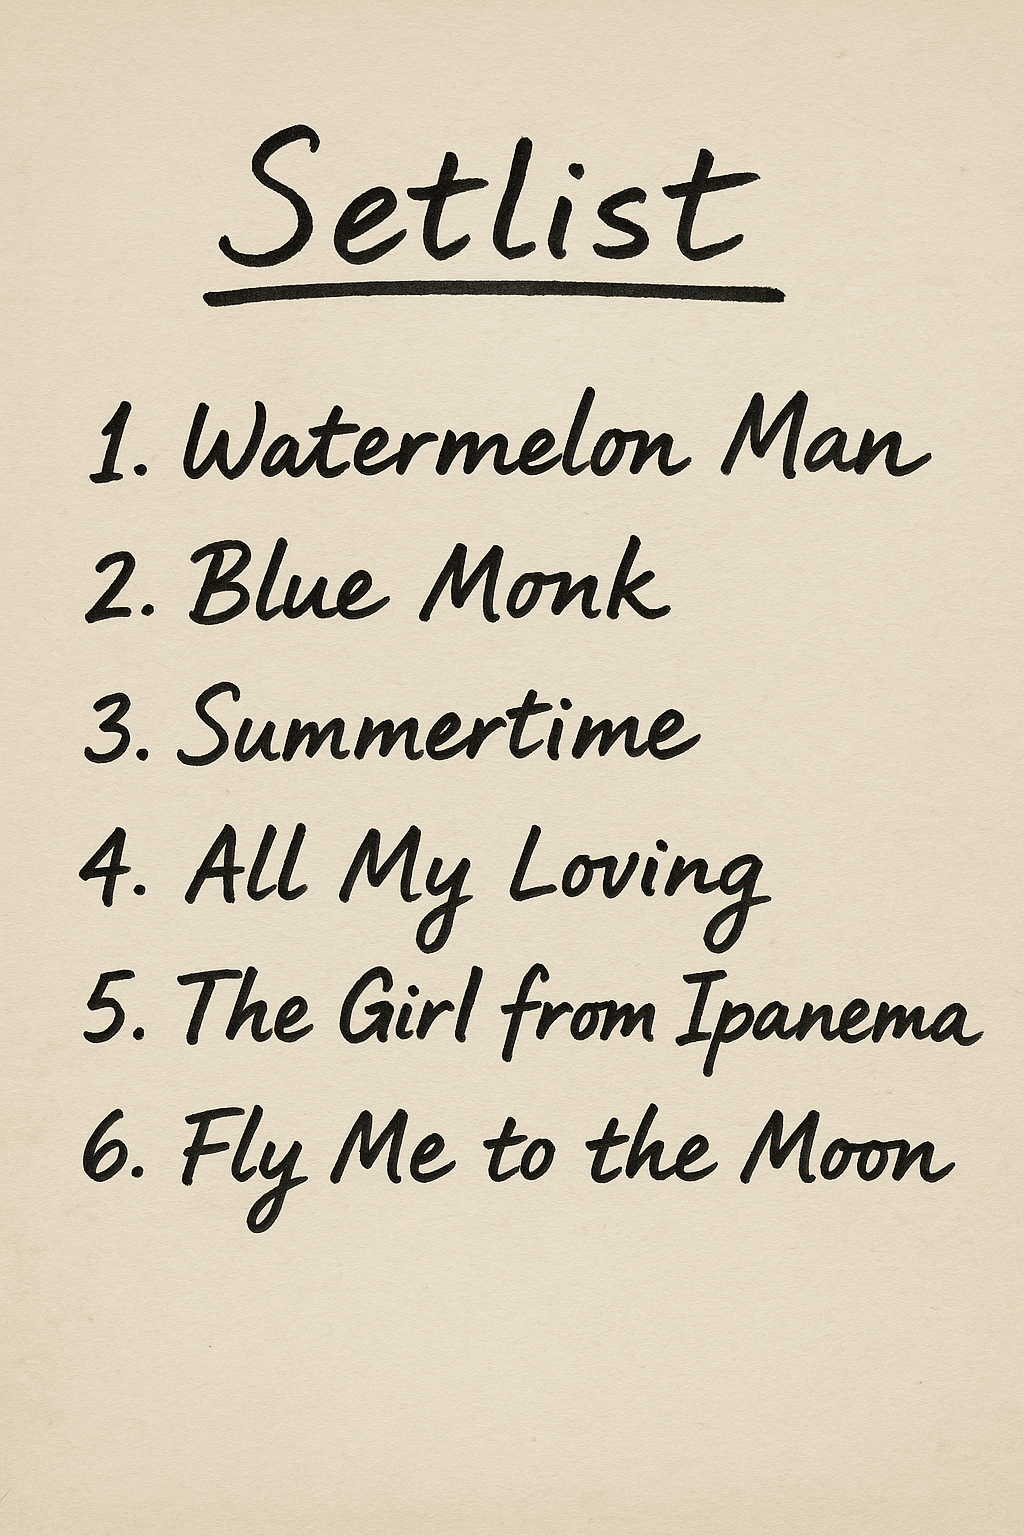 Setlist
1. Watermelon Man
2. Blue Monk
3. Summertime
4. All My Loving
5. The Girl from Ipanema
6. Fly Me to the Moon